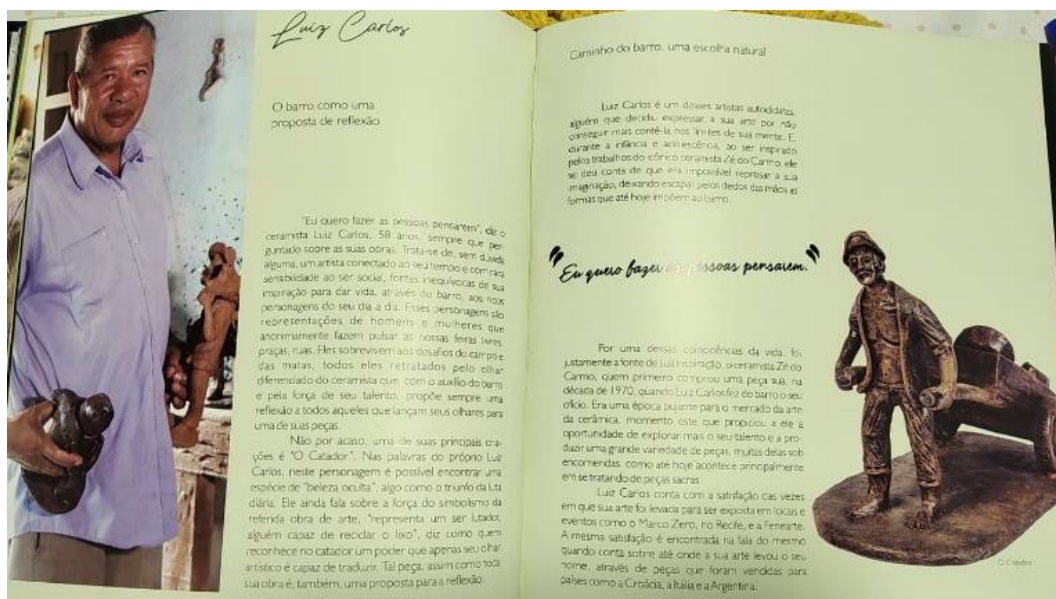 Luiz Carlos
O barro como uma
proposta de reflexão
"Eu quero fazer as pessoas pensarem", diz o
ceramista Luiz Carlos, 58 anos, sempre que per-
guntado sobre as suas obras. Trata-se de, sem dúvida
alguma, um artista conectado ao seu tempo e com rara
sensibilidade ao ser social, fontes inequívocas de sua
inspiração para dar vida, através do barro, aos ricos
personagens do seu dia a dia. Esses personagens são
representações de homens e mulheres que
anonimamente fazem pulsar as nossas feiras livres,
praças, ruas. Eles sobrevivem aos desafios do campo e
das matas, todos eles retratados pelo olhar
diferenciado do ceramista que, com o auxílio do barro
e pela força de seu talento, propõe sempre uma
reflexão a todos aqueles que lançam seus olhares para
uma de suas peças.
Não por acaso, uma de suas principais cria-
ções é "O Catador". Nas palavras do próprio Luiz
Carlos, neste personagem é possível encontrar uma
espécie de "beleza oculta", algo como o triunfo da luta
diária. Ele ainda fala sobre a força do simbolismo da
referida obra de arte, "representa um ser lutador,
alguém capaz de reciclar o lixo", diz como quem
reconhece no catador um poder que apenas seu olhar
artístico é capaz de traduzir. Tal peça, assim como toda
sua obra é, também, uma proposta para a reflexão.
Caminho do barro, uma escolha natural
Luiz Carlos é um desses artistas autodidatas,
alguém que decidiu expressar a sua arte por não
conseguir mais contê-la nos limites de sua mente. E,
durante a infância e adolescência, ao ser inspirado
pelos trabalhos do icônico ceramista Zé do Carmo, ele
se deu conta de que era impossível represar a sua
imaginação, deixando escapar pelos dedos das mãos as
formas que até hoje impõem ao barro.
"Eu quero fazer as pessoas pensarem."
Por uma dessas coincidências da vida, foi
justamente a fonte de sua inspiração, o ceramista Zé do
Carmo, quem primeiro comprou uma peça sua, na
década de 1970, quando Luiz Carlos fez do barro o seu
ofício. Era uma época pujante para o mercado da arte
da cerâmica, momento este que propiciou a ele a
oportunidade de explorar mais o seu talento e a pro-
duzir uma grande variedade de peças, muitas delas sob
encomendas, como até hoje acontece principalmente
em se tratando de peças sacras.
Luiz Carlos conta com a satisfação das vezes
em que sua arte foi levada para ser exposta em locais e
eventos como o Marco Zero, no Recife, e a Fenearte.
A mesma satisfação é encontrada na fala do mesmo
quando conta sobre até onde a sua arte levou o seu
nome, através de peças que foram vendidas para
países como a Croácia, a Itália e a Argentina.
O Catador